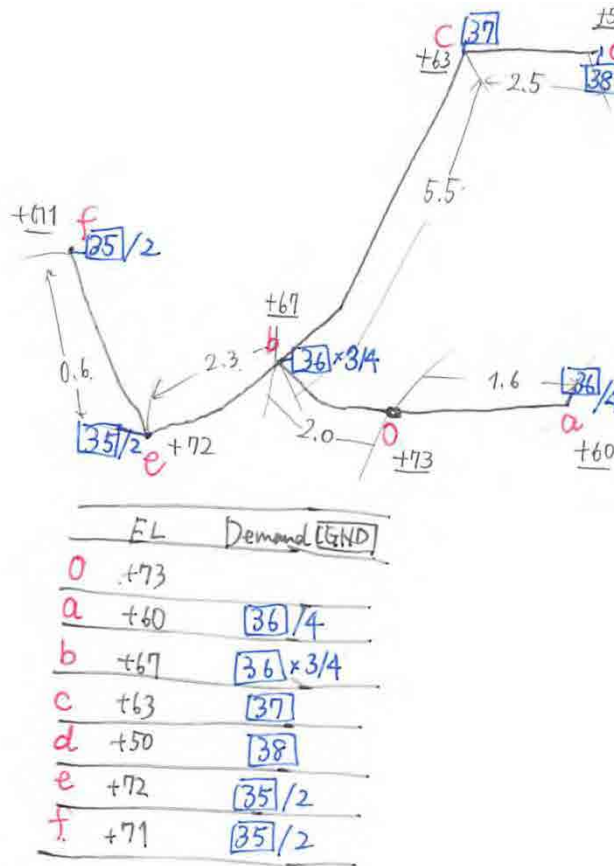 +5
C 37
+63
38
2.5
5.5
+71 f
35/2
+67
b
2.3
36×3/4
0.6
1.6
36/4
35/2
+72
2.0
0
a
e
+73
+60
EL Demand GND
0 +73
a +60 36/4
b +67 36×3/4
c +63 37
d +50 38
e +72 35/2
f +71 35/2